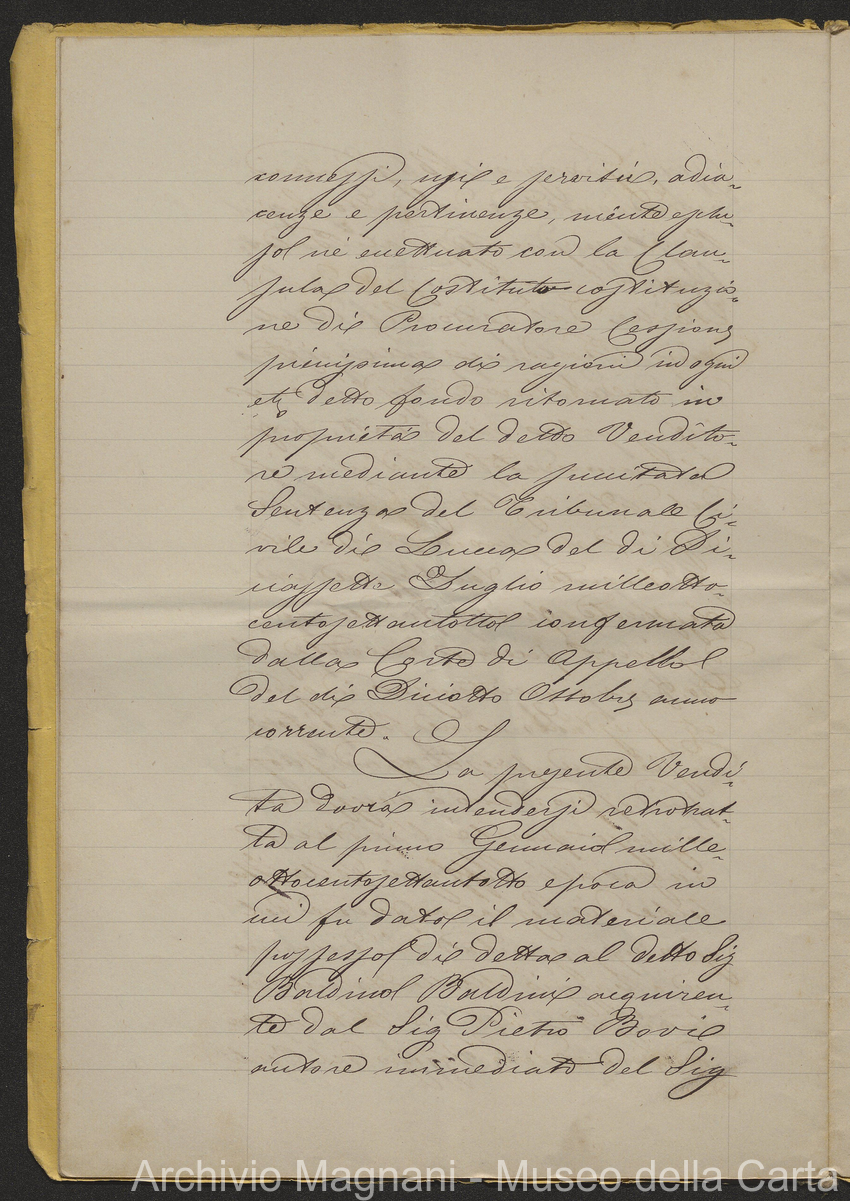 connessi, usi e servitù, adia-
cenze e pertinenze, niente esclu-
so né eccettuato con la Clau-
sula del Costituto costituzio-
ne di Procuratore Cessione
pienissima di ragioni in ogni
etc detto fondo ritornato in
proprietà del detto Vendito-
re mediante la succitata
Sentenza del Tribunale Ci-
vile di Lucca del dì Di-
ciassette Luglio milleotto-
centosettantotto confermata
dalla Corte di Appello
del dì Diciotto Ottobre anno
corrente.
La presente Vendi-
ta dovrà intendersi retrotrat-
ta al primo Gennaio mille-
ottocentosettantotto epoca in
cui fu dato il materiale
possesso di detta al detto Sig
Baldino Baldini acquiren-
te dal Sig Pietro Bovi
autore immediato del Sig
Archivio Magnani - Museo della Carta